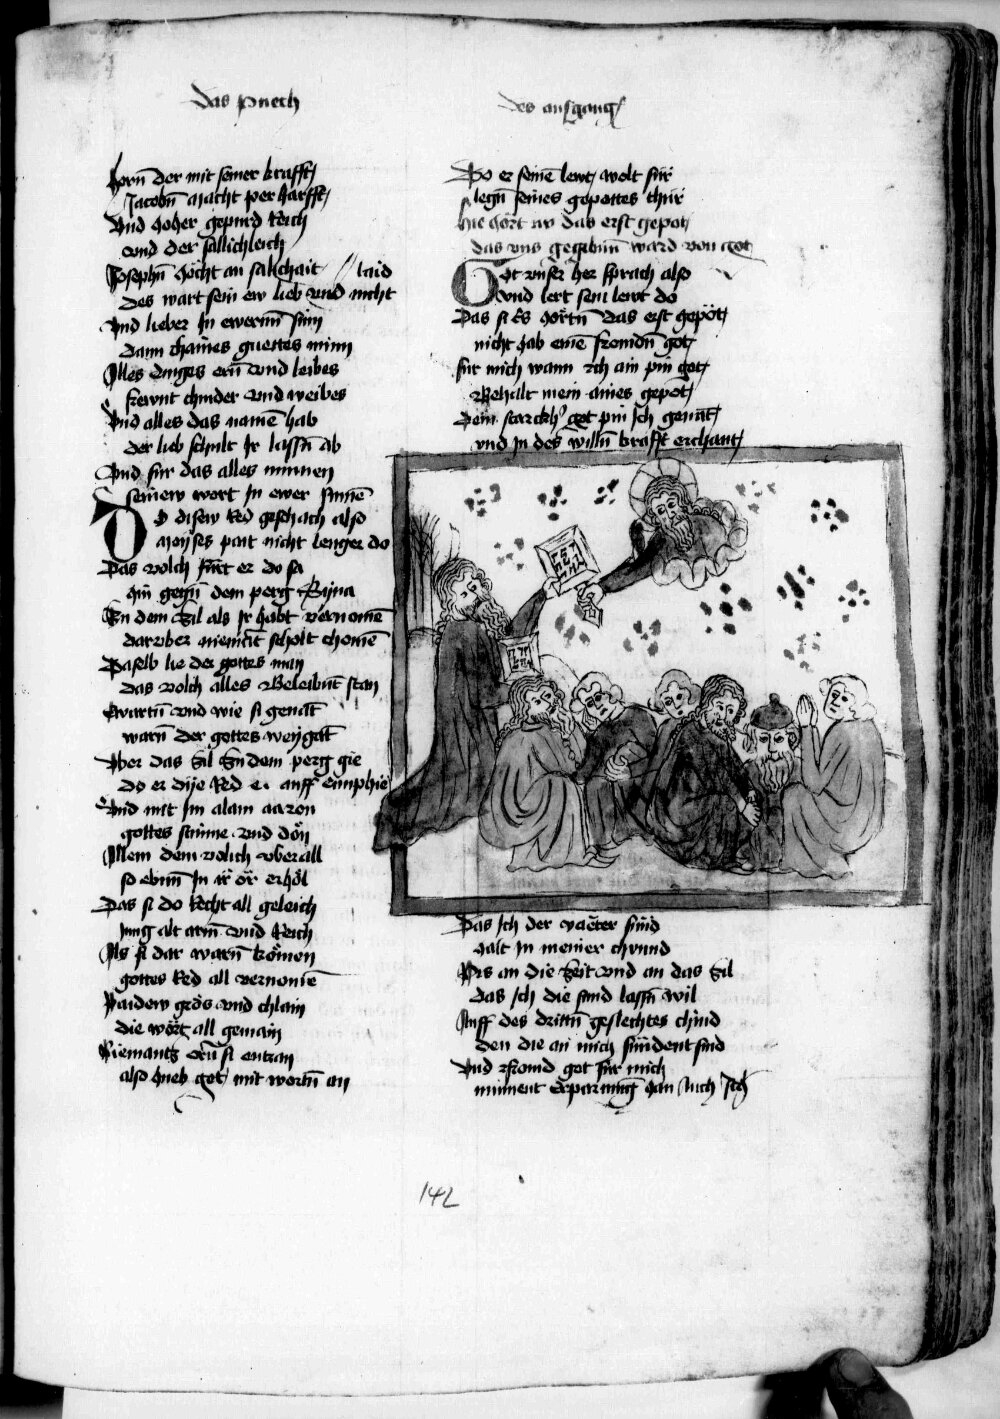 das puech
des ausgang
hern der mit seiner krafft
Jacobn macht perharfft
Vnd hoher gepurd Reich
vnd der sällichleich
Josephn höcht an sälichait // laid
des wart sein ew lieb vnd nicht
Vnd lieber In ewerm sinn
dann chaines guettes minn
Alles dinges ern vnd leibes
frewnt chinder vnd weibes
Vnd alles das namē hab
der lieb schult Ir lassn ab
Vnd für das alles minnen
seinew wort In ewer sinnē
Do disew Red geschach also
Moyses pait nicht lenger do
Das volch fürt er do sa
hin gegn dem perg Syna
In dem zil als Ir habt vernomē
darvber niemāt scholt chomē
Daselb lie der gottes man
das volch alles Beleibn̄ stan
Ewartn vnd wie si genāt
warn der gottes weygāt
Vber das zil zu dem perg gie
do er dise Red e auff emphie
Vnd mit im alain aaron
gottes stimme vnd dön
Allem dem volch vberall
so ebnn In ir ör erhöl
Das si do Recht all geleich
Jung alt arm vnd Reich
Als si dar warn kömen
gottes Red all vernomē
Paidew gros vnd chlain
die wört all gemain
Niemantz ern si entran
also hueb got mit wortn an
Do er seinē lewt wolt für
legn seines gepottes thür
hie hört ir das erst gepot
das vns gegebnn ward von got
Got vnser her sprach also
vnd lert sein lewt do
Das si Es hörtn das erst gepöt
nicht hab einē fromdn got
für mich wann Ich ain pin got
Behalt mein aines gepöt
Dein starckh' got pin Ich genāt
vnd In des willn krafft erchant
Das Ich der väter sünd
halt In meiner chvnnd
Pis an die zeit vnd an das zil
das Ich die sund lassn wil
Auff des drittn geslechtes chind
den die an mich sündent sind
Vnd fromd got für mich
niment Erparmūg han auch Ich
142